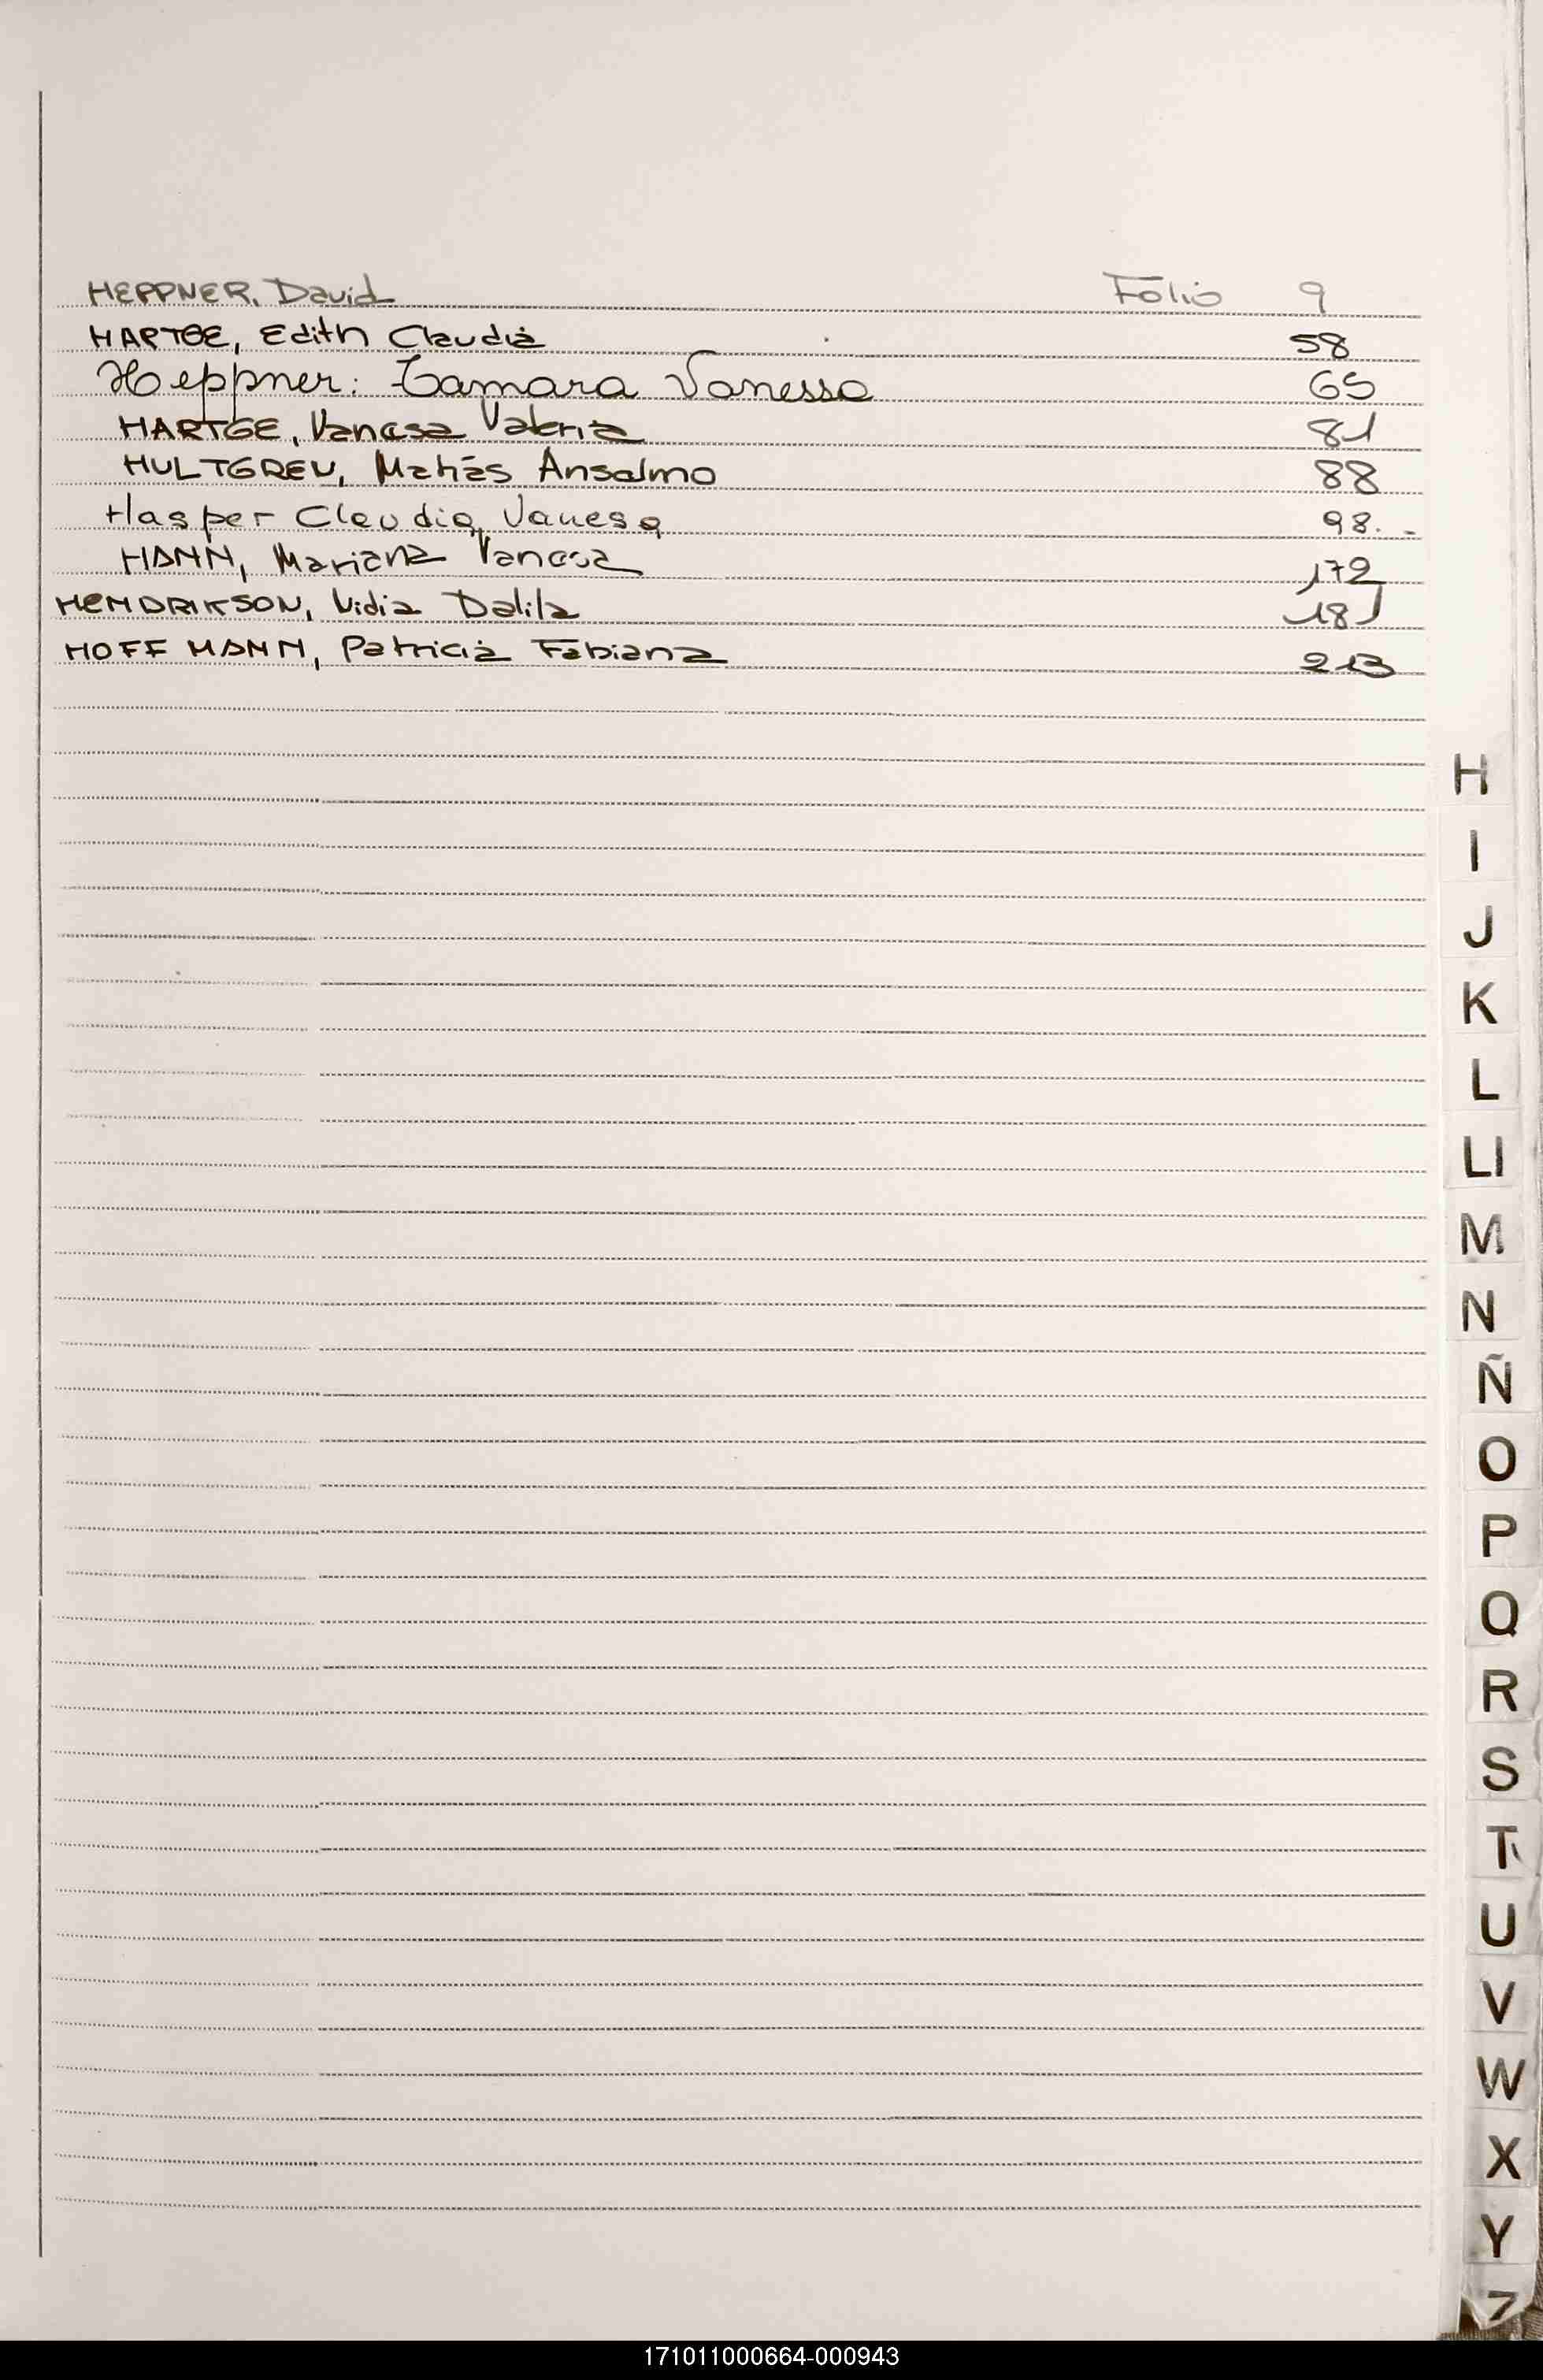 HEPPNER, David Folio 9
HARTGE, Edith Claudia 58
Heppner: Tamara Vanessa 65
HARTGE, Vanesa Valeria 81
HULTGREN, Matías Anselmo 88
Hasper Claudia, Vanesa 98.-
HANN, Mariana Vanesa 172
HENDRIKSON, Vidia Dalila 181
HOFFMANN, Patricia Fabiana 213
H
I
J
K
L
Ll
M
N
Ñ
O
P
Q
R
S
T
U
V
W
X
Y
Z
171011000664-000943